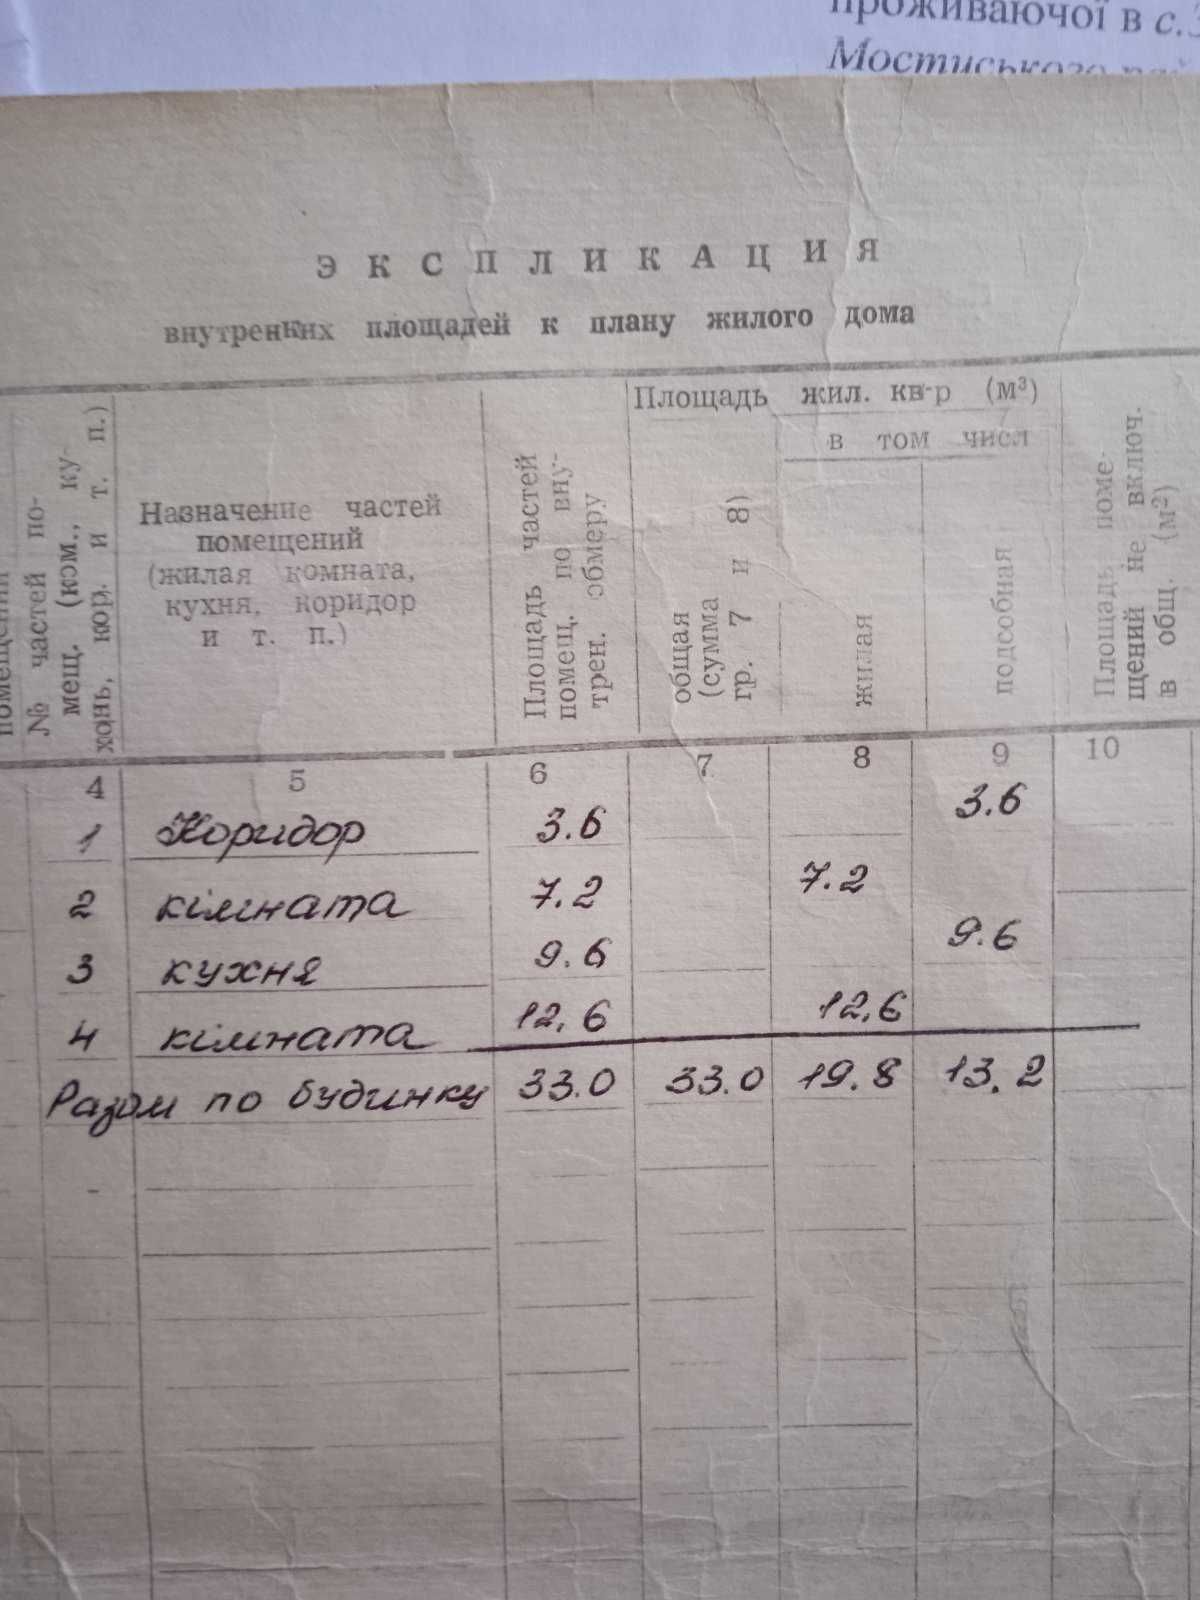 проживаючої в с.
Мостиського
ЭКСПЛИКАЦИЯ
внутренних площадей к плану жилого дома
помещений
№ частей по-
мещ. (ком., ку-
хань, кор. и т. п.)
Назначение частей
помещений
(жилая комната,
кухня, коридор
и т. п.)
Площадь частей
помещ. по вну-
трен. обмеру
Площадь жил. кв-р (м³)
в том числ
общая
(сумма
гр. 7 и 8)
жилая
подсобная
Площадь поме-
щений не включ.
в общ. (м²)
4 5 6 7 8 9 10
1 Коридор 3.6 3.6
2 кімната 7.2 7.2
3 кухня 9.6 9.6
4 кімната 12.6 12.6
Разом по будинку 33.0 33.0 19.8 13.2